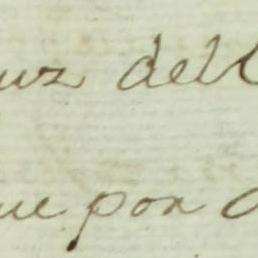 uz del
ue por